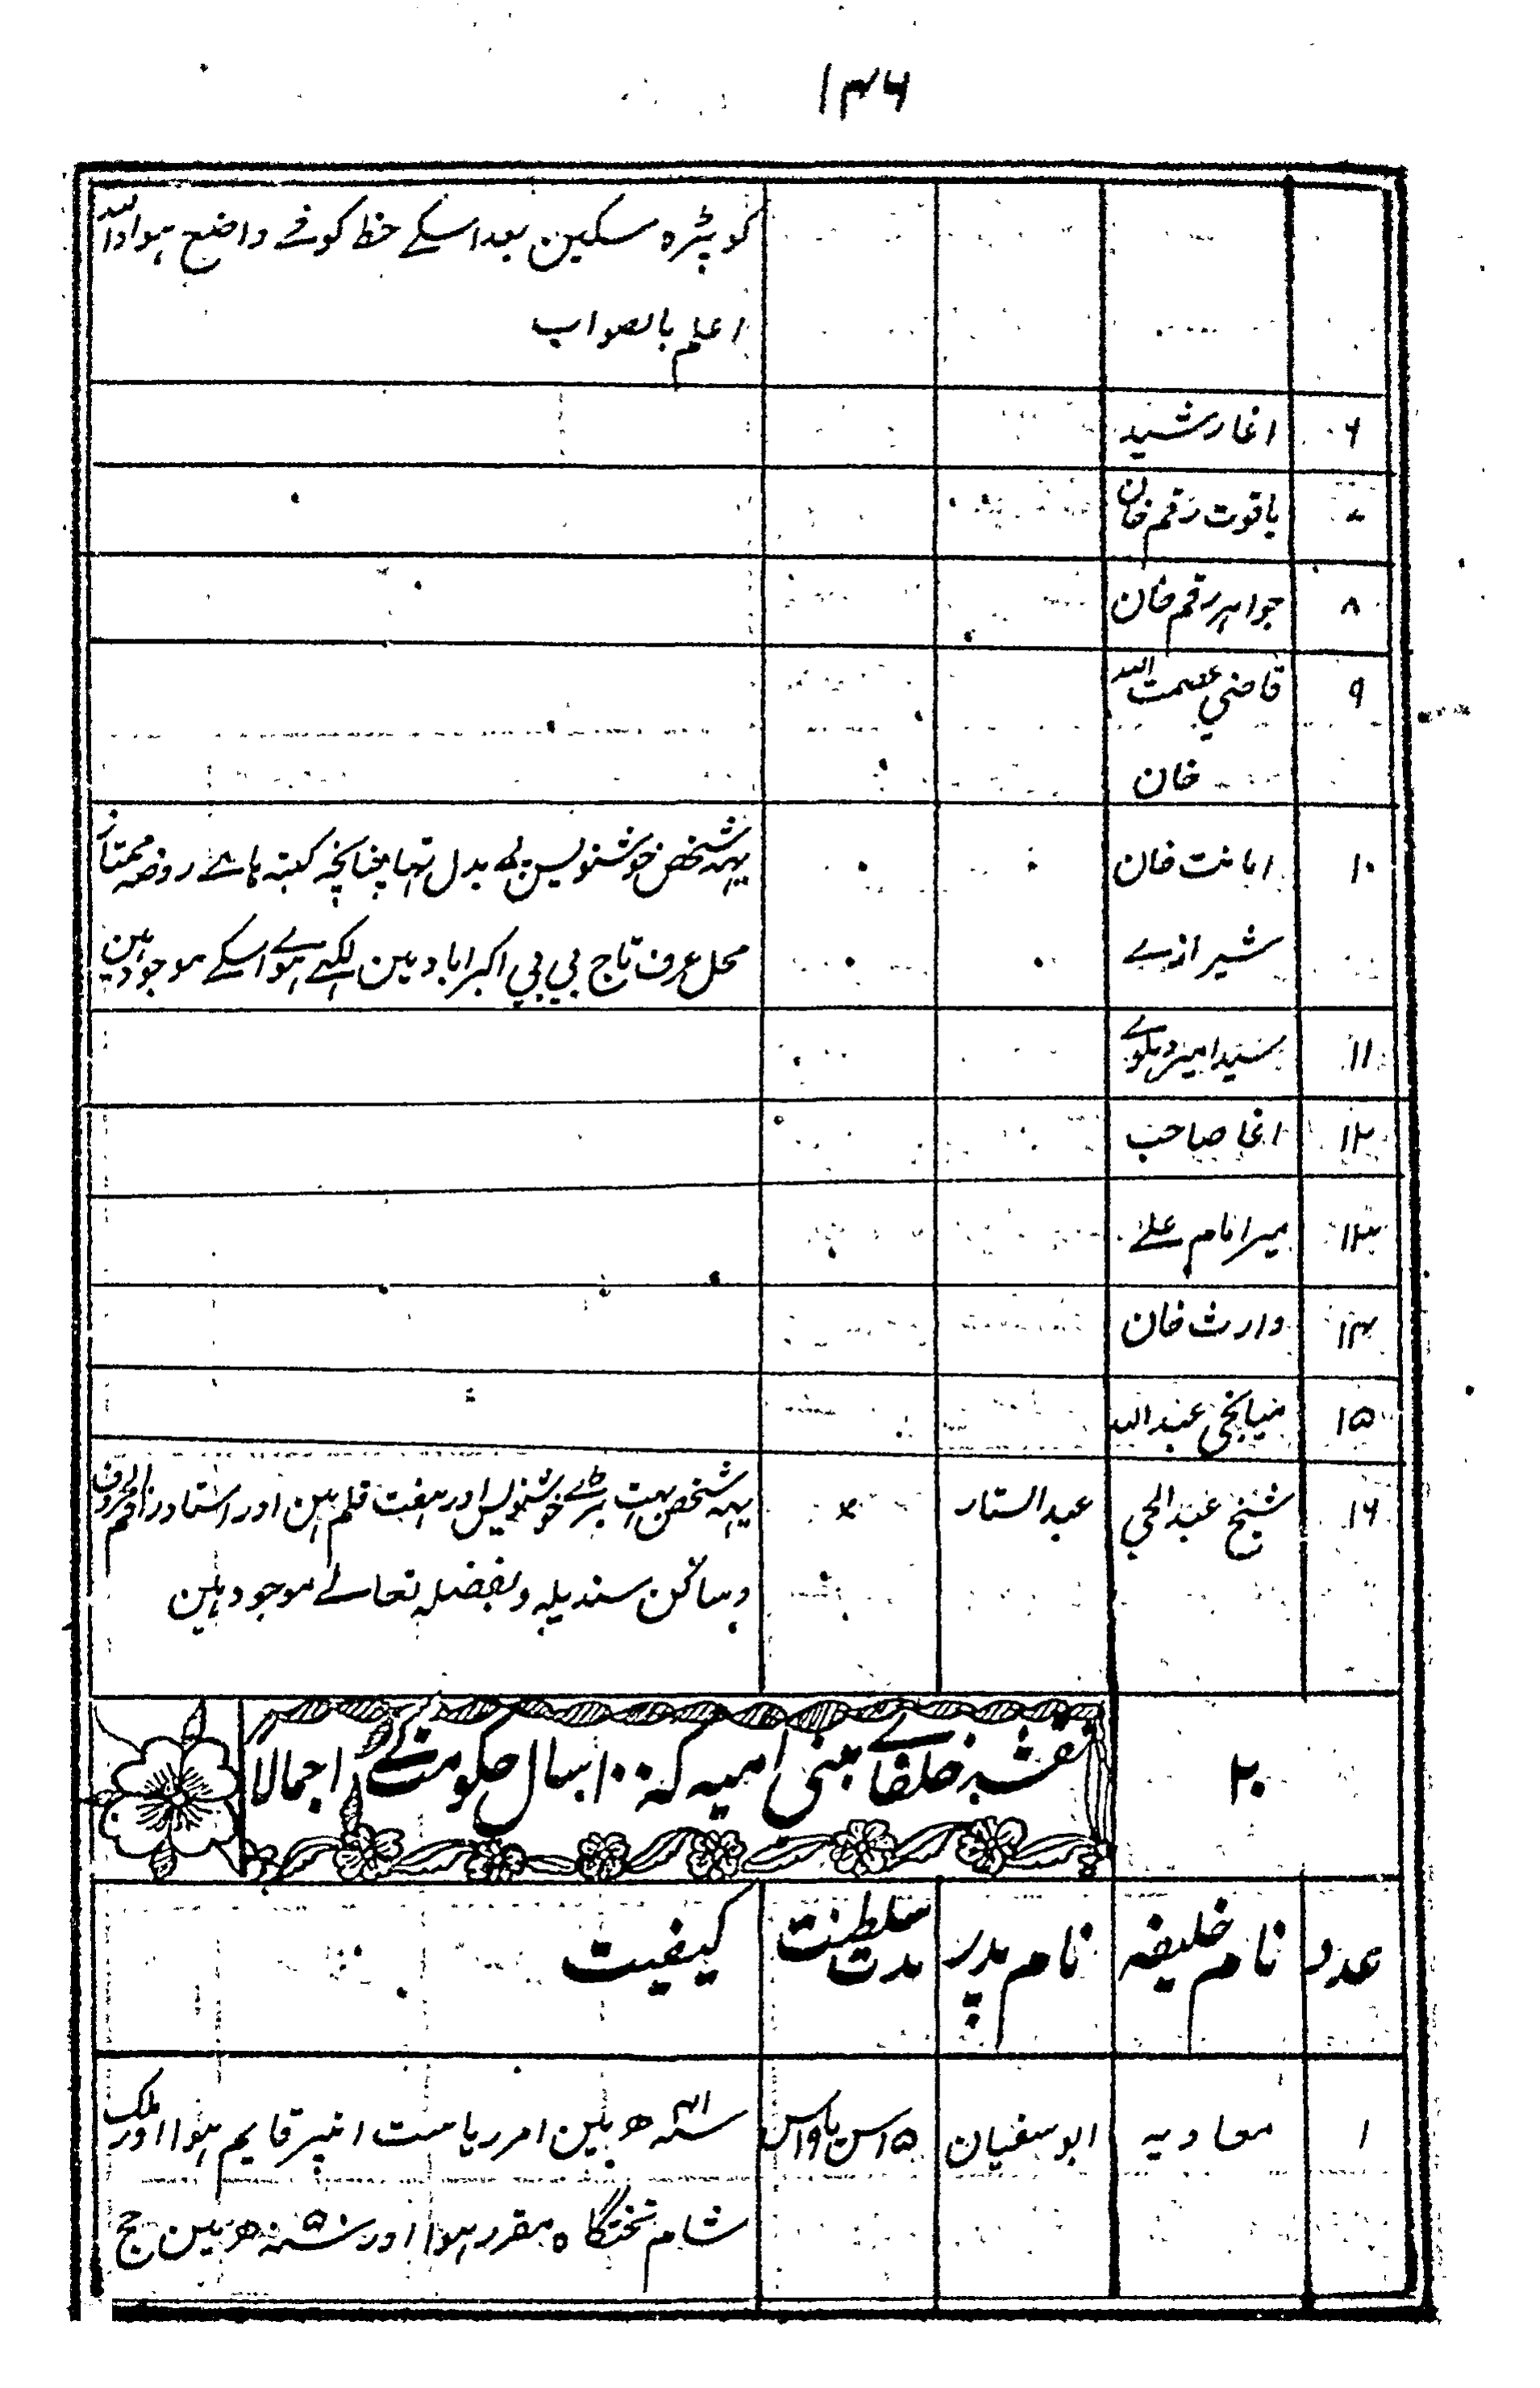 ۱۴۶
کو پڑہ سکین بعد اسکے خط کوفے واضح ہوا واللہ
اعلم بالصواب
۶ اغا رشید
۷ یاقوت رقم خان
۸ جواہر رقم خان
۹ قاضي عصمت اللہ
خان
۱۰ امانت خان یہہ شخص خوشنویس بے بدل تہا چنانچہ کتبہ ہاے روضہ ممتاز
شیرازے محل عرف تاج بي بي اکبراباد مین لکہے ہوے اسکے موجود ہین
۱۱ سید امیر دہلوے
۱۲ اغا صاحب
۱۳ میر امام علے
۱۴ وارث خان
۱۵ میانجي عبد اللہ
۱۶ شیخ عبد الحي عبد الستار × یہہ شخص بہت بڑے خوشنویس اور ہفت قلم ہین اور استاد راقم الحروف
و ساکن سندیلہ و بفضلہ تعالے موجود ہین
۲۰ نقشہ خلفاے بنی امیہ کہ ۱۰۰ سال حکومت کے اجمالا
عدد نام خلیفہ نام پدر مدت سلطنت کیفیت
۱ معاویہ ابو سفیان ۱۵ سن یا ۱۹ س سنہ ۴۱ ھ مین امر ریاست انپر قایم ہوا اور ملک
شام تختگاہ مقرر ہوا اور سنہ ۵۰ ھ مین حج